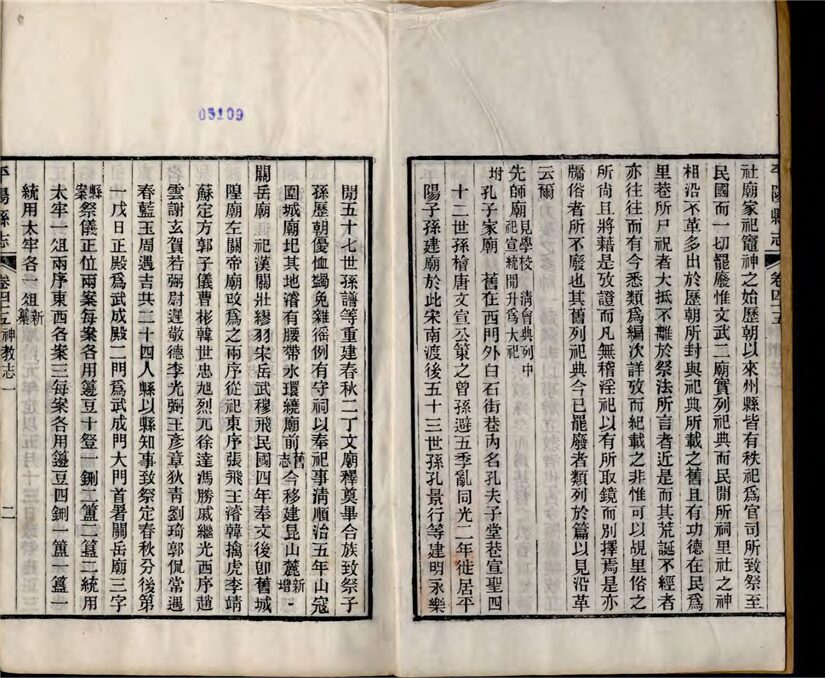 05109
平陽縣志 卷四十五
社廟家祀竈神之始歷朝以來州縣皆有秩祀爲官司所致祭至
民國而一切罷廢惟文武二廟實列祀典而民間所祠里社之神
相沿不革多出於歷朝所封與祀典所載之舊且有功德在民爲
里巷所尸祝者大抵不離於祭法所言者近是而其荒誕不經者
亦往往而有今悉類爲編次詳攷而紀載之非惟可以覘里俗之
所尚且將藉是攷證而凡無稽淫祀以有所取鏡而別擇焉是亦
牖俗者所不廢也其舊列祀典今已罷廢者類列於篇以見沿革
云爾
先師廟見學校 清會典列中祀宣統間升爲大祀
坿孔子家廟 舊在西門外白石街巷內名孔夫子堂巷宣聖四
十二世孫檜唐文宣公策之曾孫避五季亂同光二年徙居平
陽子孫建廟於此宋南渡後五十三世孫孔景行等建明永樂
間五十七世孫譜等重建春秋二丁文廟釋奠畢合族致祭子
孫歷朝優恤蠲免雜徭例有守祠以奉祀事清順治五年山寇
圍城廟圮其地濬有腰帶水環繞廟前舊志今移建昆山麓新增
關岳廟 祀漢關壯繆羽宋岳武穆飛民國四年奉文後卽舊城
隍廟左關帝廟改爲之兩序從祀東序張飛王濬韓擒虎李靖
蘇定方郭子儀曹彬韓世忠旭烈兀徐達馮勝戚繼光西序趙
雲謝玄賀若弼尉遲敬德李光弼王彥章狄青劉琦郭侃常遇
春藍玉周遇吉共二十四人縣以縣知事致祭定春秋分後第
一戊日正殿爲武成殿二門爲武成門大門首署關岳廟三字
縣案祭儀正位兩案每案各用籩豆十登一鉶二簠二簋二統用
太牢一俎兩序東西各案三每案各用籩豆四鉶一簠一簋一
統用太牢各一俎新纂
平陽縣志 卷四十五 神教志一 二